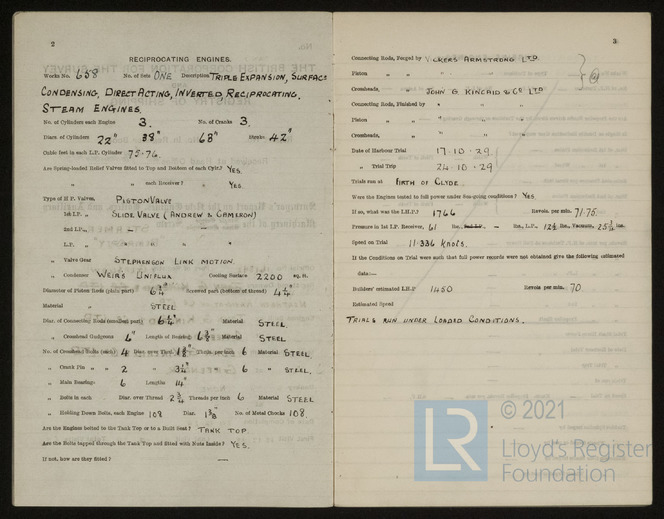 2
RECIPROCATING ENGINES.
Works No. 658 No. of Sets ONE Description TRIPLE EXPANSION, SURFACE
CONDENSING, DIRECT ACTING, INVERTED RECIPROCATING,
STEAM ENGINES.
No. of Cylinders each Engine 3. No. of Cranks 3.
Diars. of Cylinders 22" 38" 68" Stroke 42"
Cubic feet in each L.P. Cylinder 75.76.
Are Spring-loaded Relief Valves fitted to Top and Bottom of each Cylr.? YES.
" " each Receiver? " YES.
Type of H.P. Valves, PISTON VALVE
1st I.P. " SLIDE VALVE (ANDREW & CAMERON)
2nd I.P. " — —
L.P. " " "
" Valve Gear STEPHENSON LINK MOTION.
" Condenser WEIRS UNIFLUX Cooling Surface 2200 sq. ft.
Diameter of Piston Rods (plain part) 6¾" Screwed part (bottom of thread) 4¼"
Material STEEL
Diar. of Connecting Rods (smallest part) 6¼" Material STEEL
" Crosshead Gudgeons 6" Length of Bearing 6¾" Material STEEL.
No. of Crosshead Bolts (each) 4 Diar. over Thrd. 1⅞" Thrds. per inch 6 Material STEEL.
" Crank Pin " " 2 " 3¼" " 6 " STEEL.
" Main Bearings 6 Lengths 14"
" Bolts in each Diar. over Thread 2¾ Threads per inch 6 Material STEEL
" Holding Down Bolts, each Engine 108 Diar. 1⅜" No. of Metal Chocks 108
Are the Engines bolted to the Tank Top or to a Built Seat? TANK TOP.
Are the Bolts tapped through the Tank Top and fitted with Nuts Inside? YES.
If not, how are they fitted? —
3
Connecting Rods, Forged by VICKERS ARMSTRONG LTD.
Piston " " " "
Crossheads, " JOHN G KINCAID & CO LTD
Connecting Rods, Finished by " " "
Piston " " " " "
Crossheads, " " " "
Date of Harbour Trial 17.10.29.
" Trial Trip 24.10.29
Trials run at FIRTH OF CLYDE.
Were the Engines tested to full power under Sea-going conditions? YES.
If so, what was the I.H.P.? 1766 Revols. per min. 71.75.
Pressure in 1st I.P. Receiver, 61 lbs., 2nd I.P. — lbs., L.P., 12½ lbs., Vacuum, 25½ ins.
Speed on Trial 11.336 knots.
If the Conditions on Trial were such that full power records were not obtained give the following estimated
data:—
Builders' estimated I.H.P. 1450 Revols. per min. 70.
Estimated Speed
TRIALS RUN UNDER LOADED CONDITIONS.
LR
© 2021
Lloyd's Register
Foundation